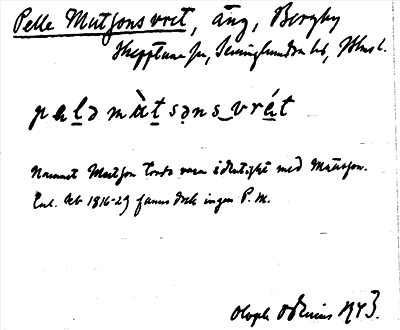 Pelle Matssons vret, äng, Bergby
Skepptuna sn, Seminghundra hd, Sthms l.
pælə màtsəns vrét
Namnet Matsson torde vara identiskt med Måtsson.
Enl. hb 1816-29 fanns dock ingen P. M.
Oloph Odenius 1943.